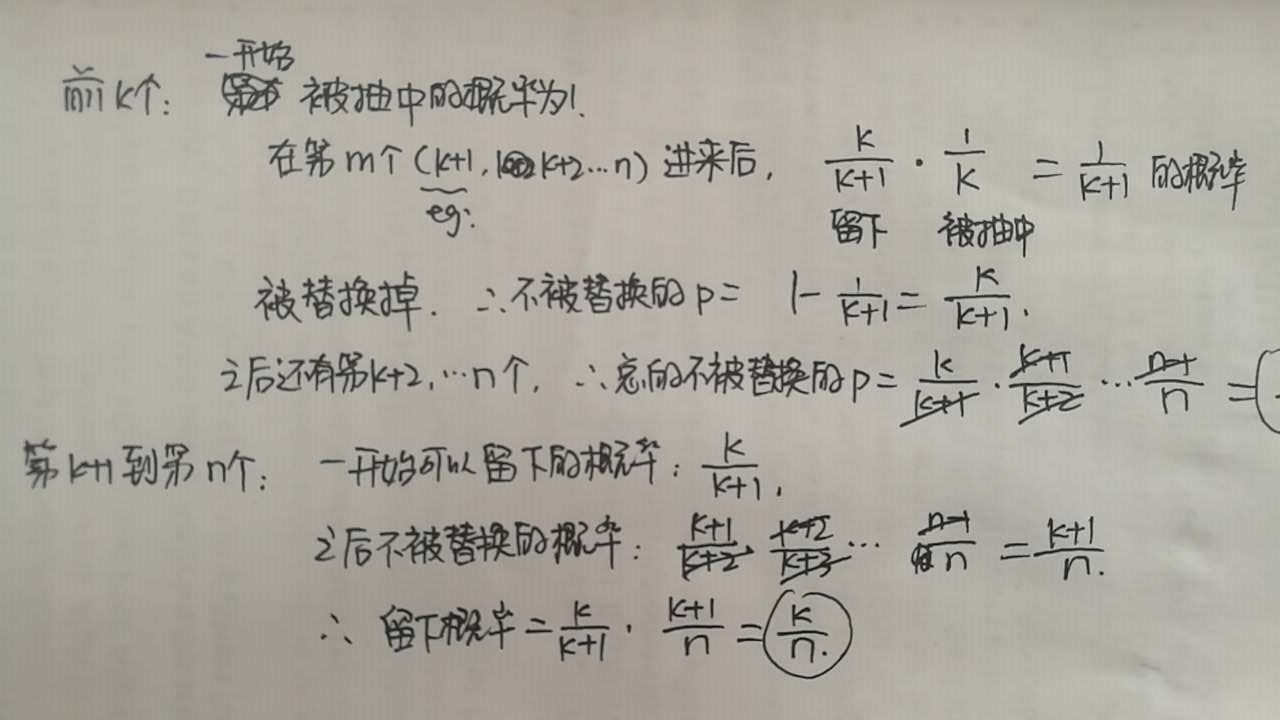 一开始
前k个: 被抽中的概率为1.
在第m个(k+1, k+2…n)进来后, k/(k+1) · 1/k = 1/(k+1) 的概率
eg: 留下 被抽中
被替换掉. ∴不被替换的p= 1- 1/(k+1) = k/(k+1).
之后还有第k+2,…n个, ∴总的不被替换的p= k/(k+1) · (k+1)/(k+2) … (n-1)/n =
第k+1到第n个: 一开始可以留下的概率: k/(k+1).
之后不被替换的概率: (k+1)/(k+2) · (k+2)/(k+3) … (n-1)/n = (k+1)/n.
∴ 留下概率= k/(k+1) · (k+1)/n = k/n.